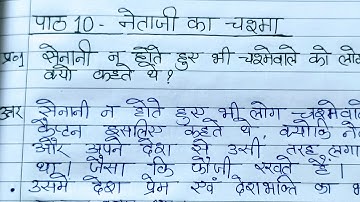 पाठ 10 - नेताजी का चश्मा
प्रश्न1 सेनानी न होते हुए भी चश्मेवाले को लोग
क्यो कहते थे?
उत्तर सेनानी न होते हुए भी लोग चश्मेवाले
कैप्टन इसलिए कहते थे, क्योकि
और अपने देश से उसी तरह लगा
था। जैसा कि फौजी रखते हैं।
• उसमे देश प्रेम एवं देशभक्ति का